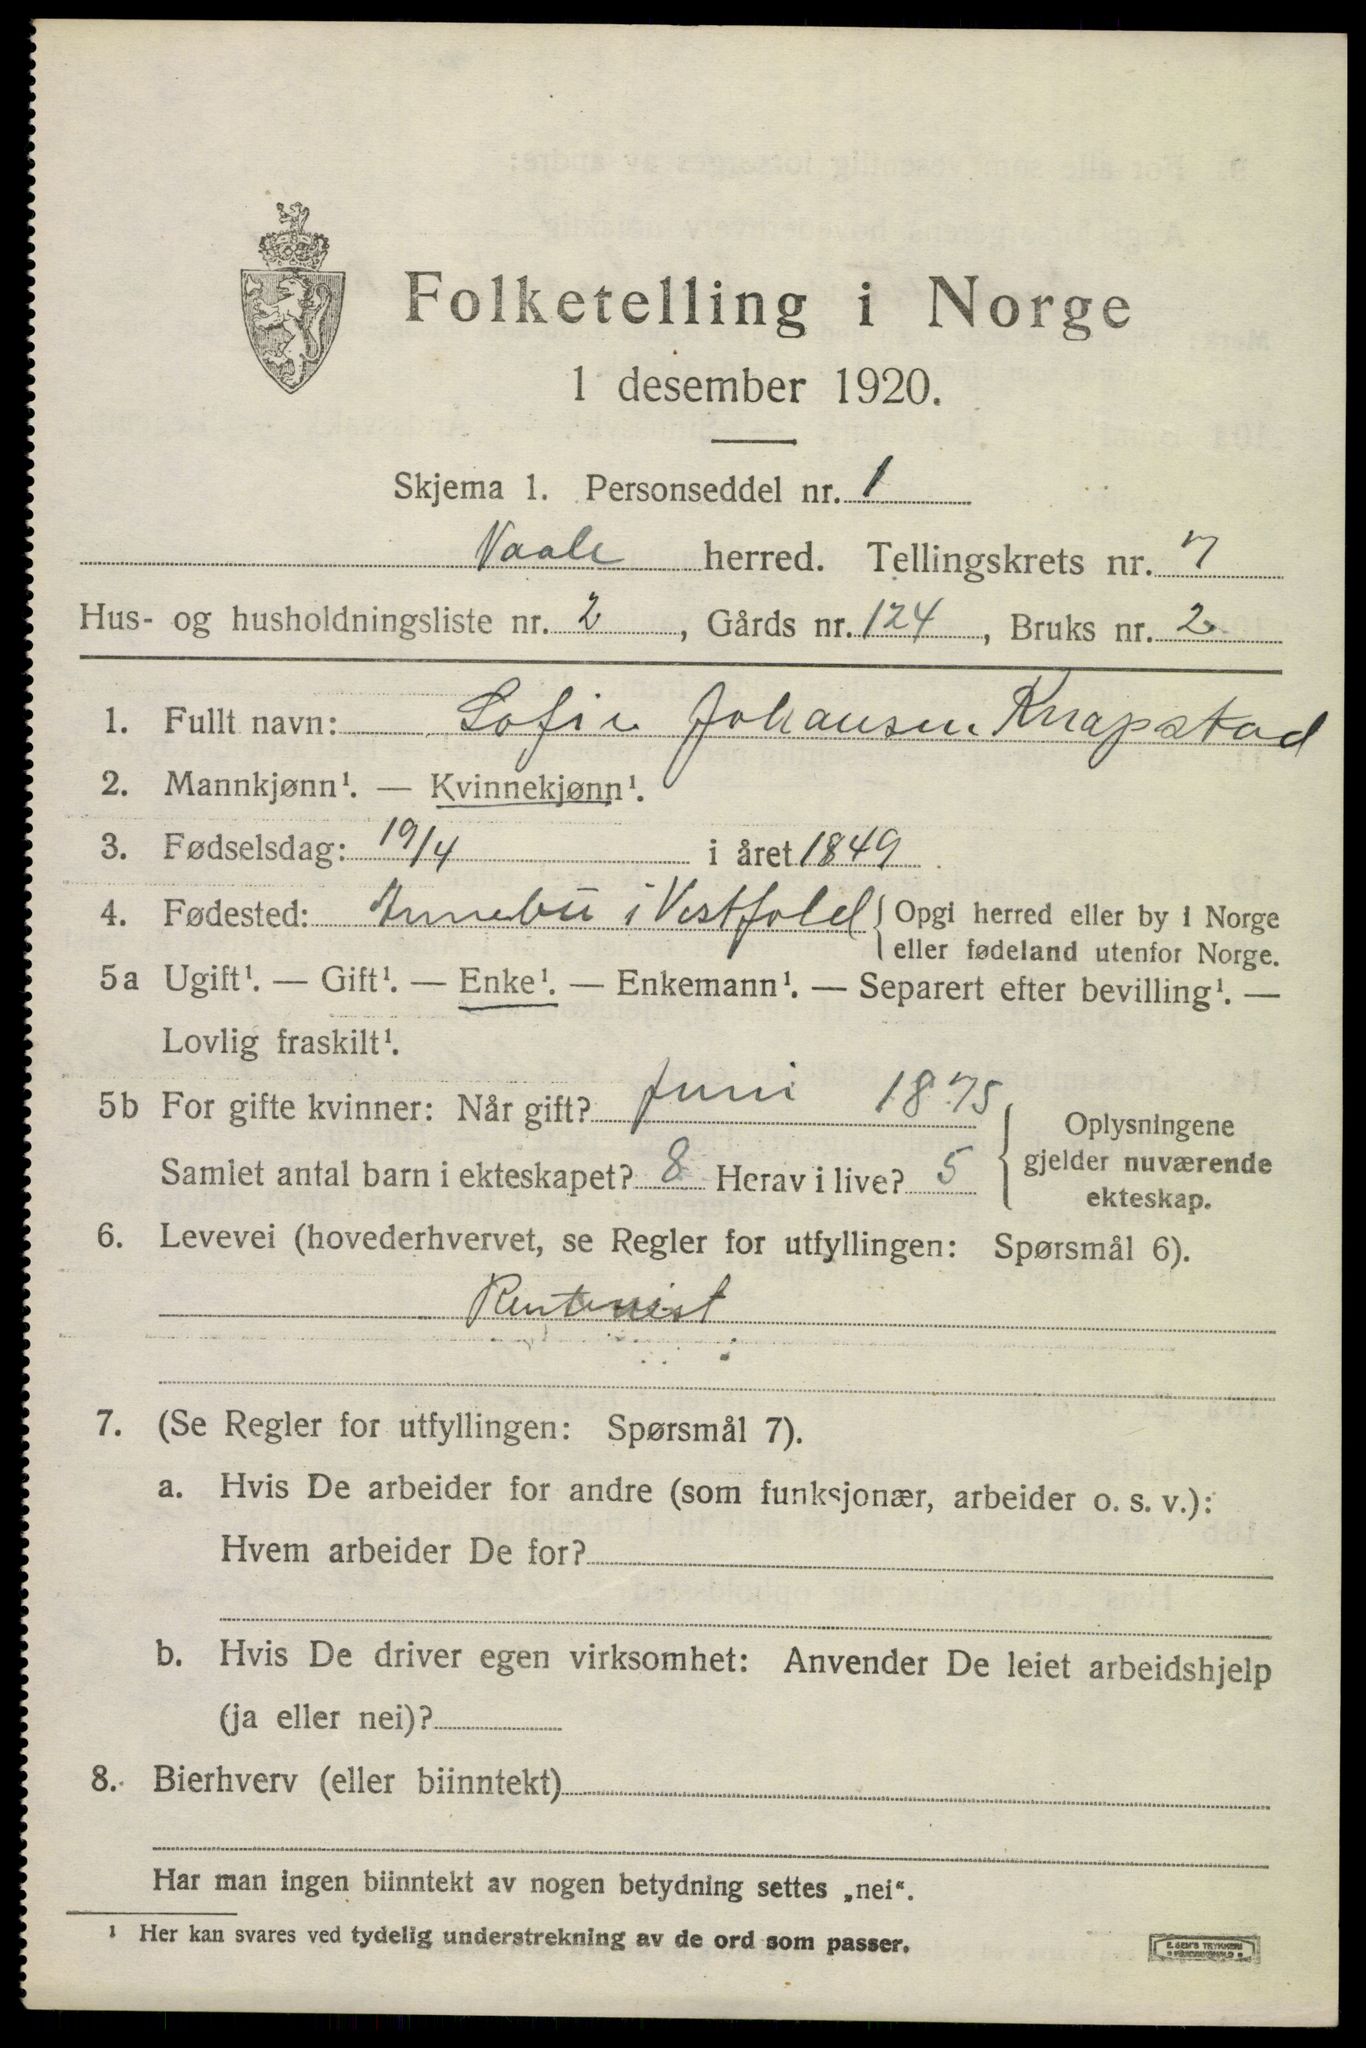 Folketelling i Norge
1 desember 1920.
Skjema 1. Personseddel nr. 1
Vaale herred. Tellingskrets nr. 7
Hus- og husholdningsliste nr. 2, Gårds nr. 124, Bruks nr. 2
1. Fullt navn: Sofie Johansen Knapstad
2. Mannkjønn¹. — Kvinnekjønn¹.
3. Fødselsdag: 19/4 i året 1849
4. Fødested: Annebu i Vestfold { Opgi herred eller by i Norge
eller fødeland utenfor Norge.
5a Ugift¹. — Gift¹. — Enke¹. — Enkemann¹. — Separert efter bevilling¹. —
Lovlig fraskilt¹.
5b For gifte kvinner: Når gift? Juni 1875
Samlet antal barn i ekteskapet? 8 Herav i live? 5
Oplysningene
gjelder nuværende
ekteskap.
6. Levevei (hovederhvervet, se Regler for utfyllingen: Spørsmål 6).
Rentenist
7. (Se Regler for utfyllingen: Spørsmål 7).
a. Hvis De arbeider for andre (som funksjonær, arbeider o. s. v.):
Hvem arbeider De for?
b. Hvis De driver egen virksomhet: Anvender De leiet arbeidshjelp
(ja eller nei)?
8. Bierhverv (eller biinntekt)
Har man ingen biinntekt av nogen betydning settes „nei“.
¹ Her kan svares ved tydelig understrekning av de ord som passer.